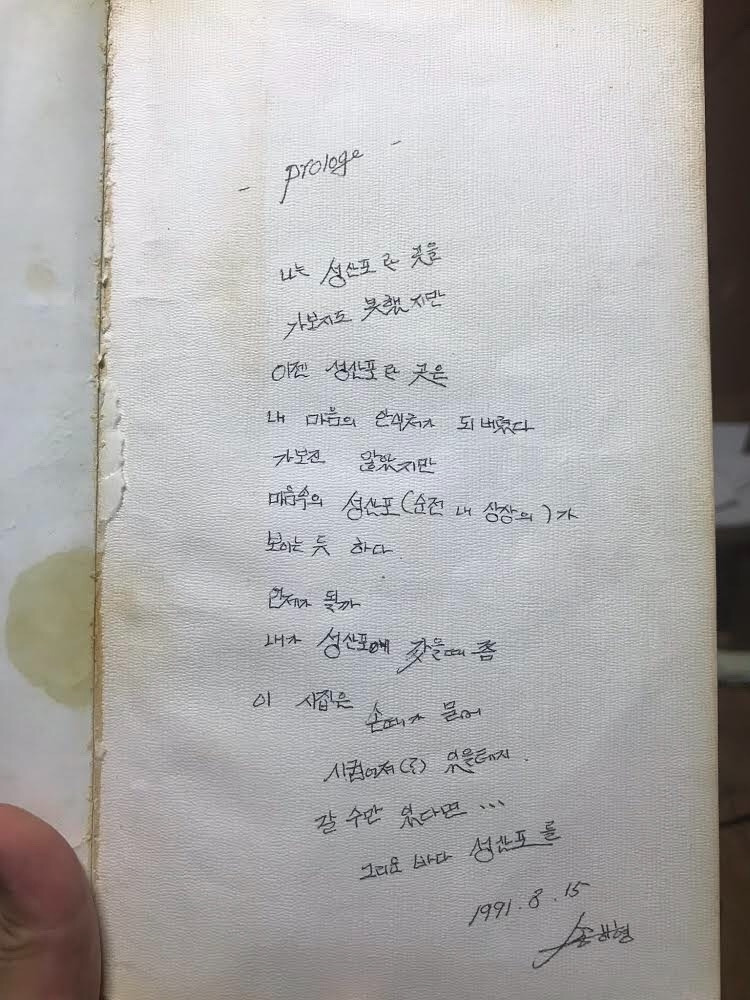 - prologe -
나는 성산포란 곳을
가보지도 못했지만
이젠 성산포란 곳은
내 마음의 안식처가 되버렸다
가보진 않았지만
마음속의 성산포(순전 내 상상의)가
보이는 듯 하다.
언제가 될까
내가 성산포에 갔을때 쯤
이 시집은 손때가 묻어
시컴어져(?) 있을테지.
갈 수만 있다면...
그리운 바다 성산포를
1991. 8. 15